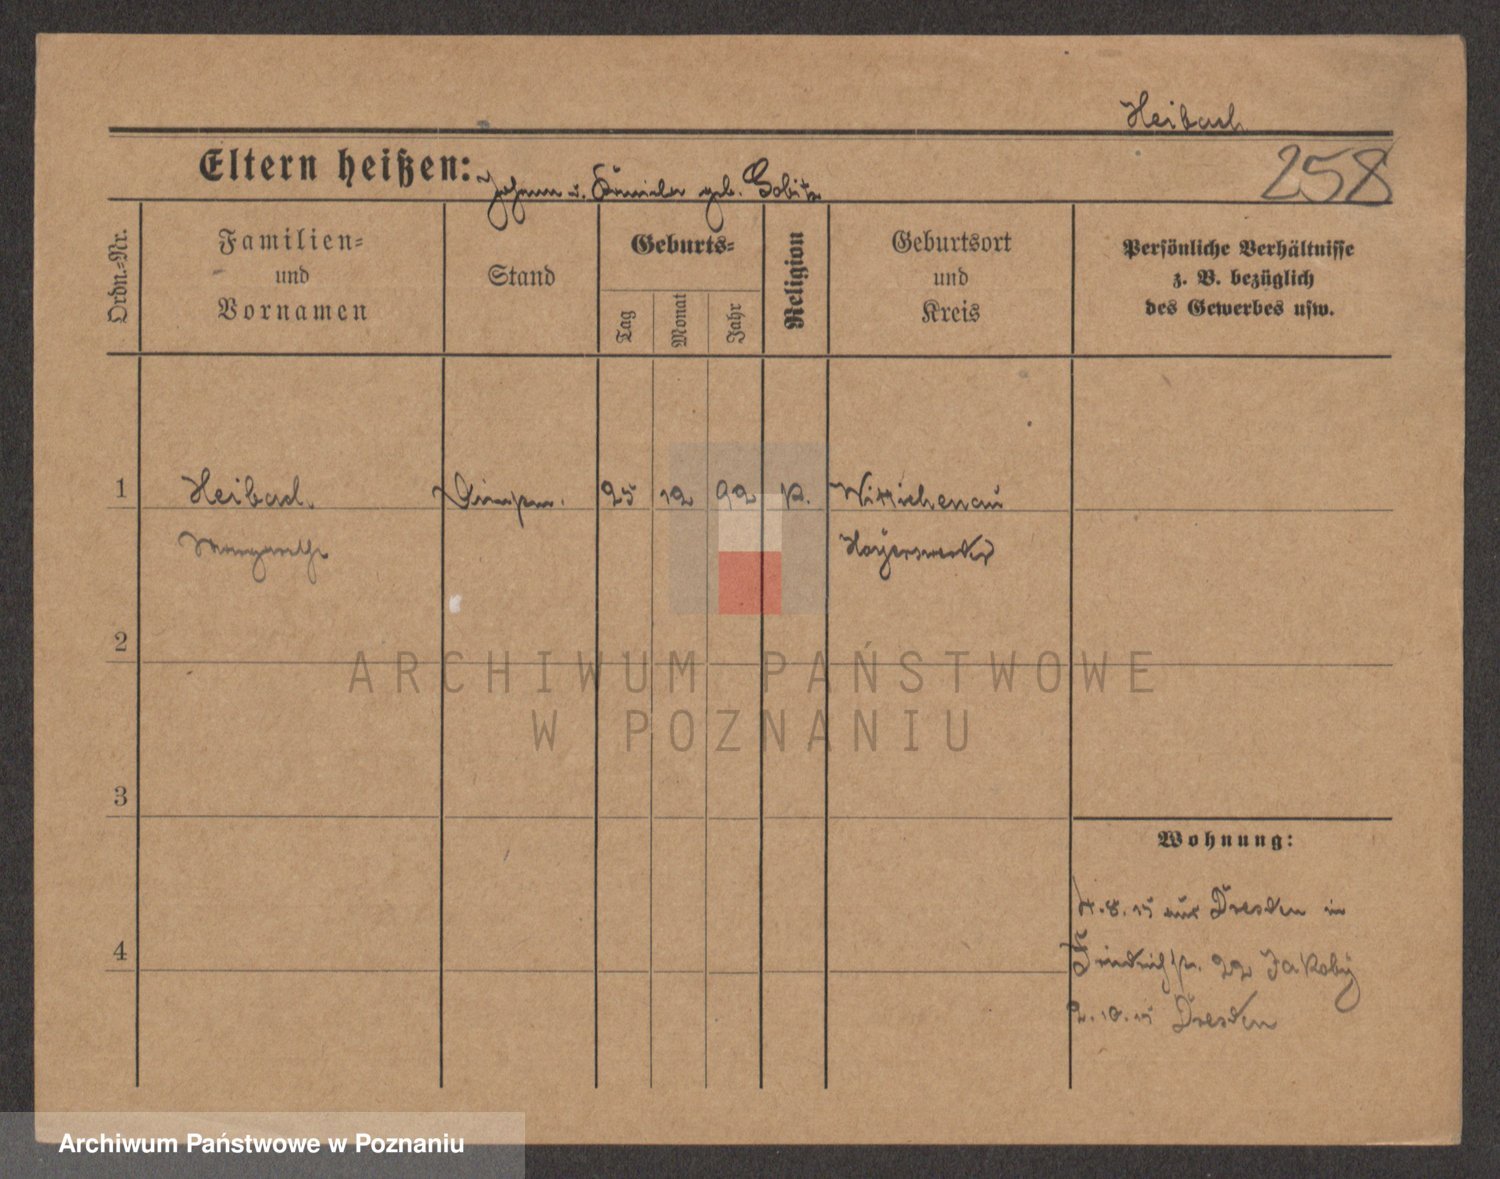 Heibach
258
Eltern heißen: Johann u. geb.
Ordn.=Nr.
Familien=
und
Vornamen
Stand
Geburts=
Tag
Monat
Jahr
Religion
Geburtsort
und
Kreis
Persönliche Verhältnisse
z. B. bezüglich
des Gewerbes usw.
1 Heibach. 25 12 92 K. Wittichenau
Margarethe Hoyerswerda
2
3
4
ARCHIWUM PAŃSTWOWE
W POZNANIU
Wohnung:
4.8.15 aus Dresden in
Friedrichstr. 22 Jakoby
2.10.15 Dresden
Archiwum Państwowe w Poznaniu